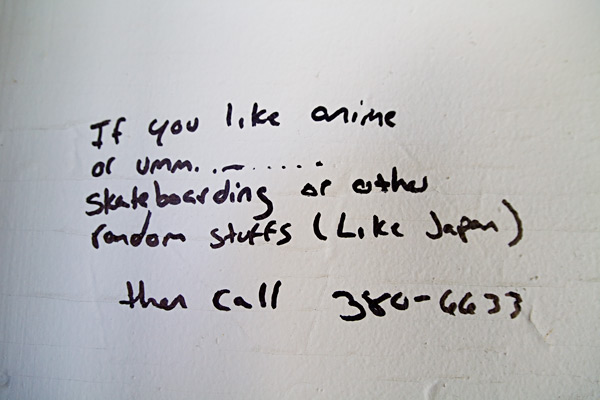 If you like anime
or umm..~.....
skateboarding or other
random stuffs (Like Japan)
then call 380-6633